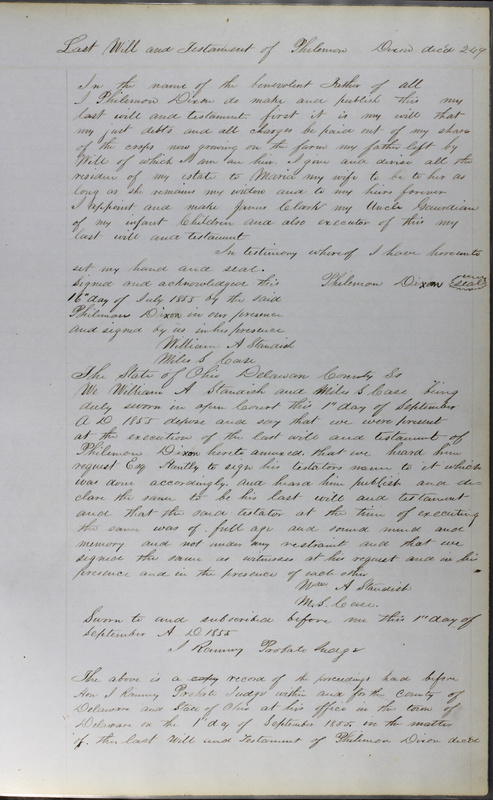 Last Will and Testament of Philemon Dixon dec'd 249
In the name of the benevolent Father of all
I Philemon Dixon do make and publish this my
last will and testament. first it is my will that
my just debts and all charges be paid out of my share
of the crops now growing on the farm my father left by
Will of which I am an heir. I give and devise all the
residue of my estate to Maria my wife to be to her as
long as she remains my widow and to my heirs forever
I appoint and make Clark my Uncle Gaurdian
of my infant Children and also executor of this my
last will and testament
In testimony whereof I have hereunto
set my hand and seal.
Signed and acknowledged this Philemon Dixon seal
16th day of July 1855 by the said
Philemon Dixon in our presence
and signed by us in his presence
William A Standish
Miles S. Case
The State of Ohio Delaware County Ss
We William A Standish and Miles S. Case being
duly sworn in open Court this 1st day of September
A D 1855 depose and say that we were present
at the execution of the last will and testament of
Philemon Dixon hereto annexed. that we heard him
request Esq to sign his testators name to it which
was done accordingly. and heard him publish and de-
clare the same to be his last will and testament
and that the said testator at the time of executing
the same was of full age and sound mind and
memory and not under any restraint and that we
signed the same as witnesses at his request and in his
presence and in the presence of each other
Wm A Standish
M. S. Case.
Sworn to and subscribed before me this 1st day of
September A D 1855
Ranney Probate Judge
The above is a copy record of the proceedings had before
Hon Ranney Probate Judge within and for the County of
Delaware and State of Ohio at his office in the town of
Delaware on the 1st day of September 1855. in the matter
of the last Will and Testament of Philemon Dixon dec'd